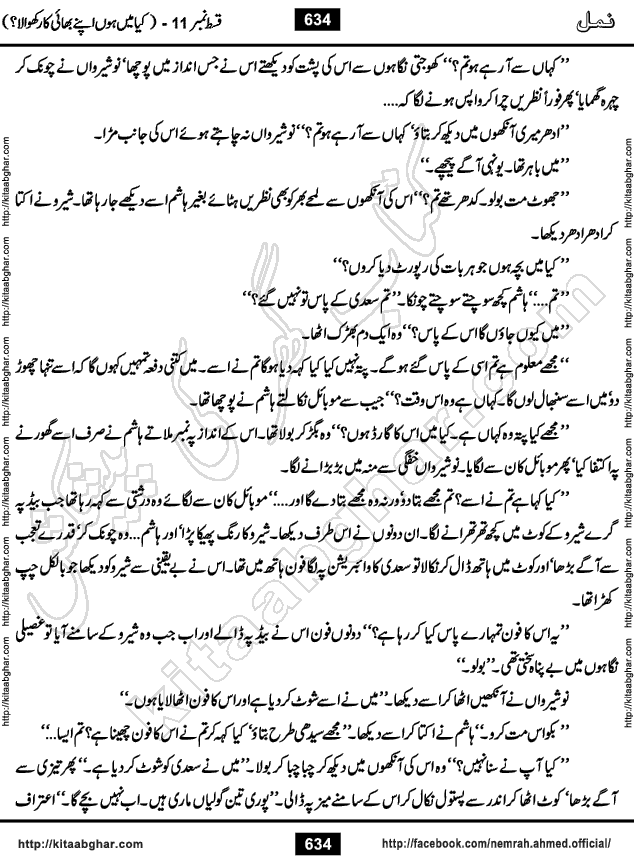 قسط نمبر 11 - (کیا میں ہوں اپنے بھائی کا رکھوالا؟)
634
نمل
’’کہاں سے آ رہے ہو تم؟‘‘ کھوجتی نگاہوں سے اس کی پشت کو دیکھتے اس نے جس انداز میں پوچھا‘ نوشیرواں نے چونک کر
چہرہ گھمایا‘ پھر فوراً نظریں چرا کر واپس ہونے لگا کہ....
’’ادھر میری آنکھوں میں دیکھ کر بتاؤ‘ کہاں سے آ رہے ہو تم؟‘‘ نوشیرواں نہ چاہتے ہوئے اس کی جانب مڑا۔
’’میں باہر تھا۔ یونہی آگے پیچھے۔‘‘
’’جھوٹ مت بولو۔ کدھر تھے تم؟‘‘ اس کی آنکھوں سے لمحے بھر کو بھی نظریں ہٹائے بغیر ہاشم اسے دیکھے جا رہا تھا۔ شیرو نے اکتا
کر ادھر ادھر دیکھا۔
’’کیا میں بچہ ہوں جو ہر بات کی رپورٹ دیا کروں؟‘‘
’’تم....‘‘ ہاشم کچھ سوچتے سوچتے چونکا۔ ’’تم سعدی کے پاس تو نہیں گئے؟‘‘
’’میں کیوں جاؤں گا اس کے پاس؟‘‘ وہ ایک دم بھڑک اٹھا۔
’’مجھے معلوم ہے تم اسی کے پاس گئے ہو گے۔ پتہ نہیں کیا کیا کہہ دیا ہو گا تم نے اسے۔ میں کتنی دفعہ تمہیں کہوں گا کہ اسے تنہا چھوڑ
دو‘ میں اسے سنبھال لوں گا۔ کہاں ہے وہ اس وقت؟‘‘ جیب سے موبائل نکالتے ہاشم نے پوچھا تھا۔
’’مجھے کیا پتہ وہ کہاں ہے۔ کیا میں اس کا گارڈ ہوں؟‘‘ وہ بگڑ کر بولا تھا۔ اس کے انداز پہ نمبر ملاتے ہاشم نے صرف اسے گھورنے
پہ اکتفا کیا‘ پھر موبائل کان سے لگایا۔ نوشیرواں خفگی سے منہ میں بڑبڑانے لگا۔
’’کیا کہا ہے تم نے اسے؟ تم مجھے بتا دو ورنہ وہ مجھے بتا دے گا اور....‘‘ موبائل کان سے لگائے وہ درشتی سے کہہ رہا تھا جب بیڈ پہ
گرے شیرو کے کوٹ میں کچھ تھرتھرانے لگا۔ ان دونوں نے اس طرف دیکھا۔ شیرو کا رنگ پھیکا پڑا‘ اور ہاشم... وہ چونک کر‘ قدرے تعجب
سے آگے بڑھا‘ اور کوٹ میں ہاتھ ڈال کر نکالا تو سعدی کا وائبریشن پہ لگا فون ہاتھ میں تھا۔ اس نے بے یقینی سے شیرو کو دیکھا جو بالکل چپ
کھڑا تھا۔
’’یہ اس کا فون تمہارے پاس کیا کر رہا ہے؟‘‘ دونوں فون اس نے بیڈ پہ ڈالے اور اب جب وہ شیرو کے سامنے آیا تو غصیلی
نگاہوں میں بے پناہ سختی تھی۔ ’’بولو۔‘‘
نوشیرواں نے آنکھیں اٹھا کر اسے دیکھا۔ ’’میں نے اسے شوٹ کر دیا ہے اور اس کا فون اٹھا لایا ہوں۔‘‘
’’بکواس مت کرو۔‘‘ ہاشم نے اکتا کر اسے دیکھا۔ ’’مجھے سیدھی طرح بتاؤ‘ کیا کہہ کر تم نے اس کا فون چھینا ہے؟ تم ایسا...‘‘
’’کیا آپ نے سنا نہیں؟‘‘ وہ اس کی آنکھوں میں دیکھ کر چبا چبا کر بولا۔ ’’میں نے سعدی کو شوٹ کر دیا ہے۔‘‘ پھر تیزی سے
آگے بڑھا‘ کوٹ اٹھا کر اندر سے پستول نکال کر اس کے سامنے میز پہ ڈالی۔ ’’پوری تین گولیاں ماری ہیں۔ اب نہیں بچے گا۔‘‘ اعتراف
http://kitaabghar.com
634
http://facebook.com/nemrah.ahmed.official/
http://kitaabghar.com http://kitaabghar.com http://kitaabghar.com http://kitaabghar.com http://kitaabghar.com http://kitaabghar.com
http://kitaabghar.com http://kitaabghar.com http://kitaabghar.com http://kitaabghar.com http://kitaabghar.com http://kitaabghar.com
کتاب گھر کی پیشکش
kitaabghar.com